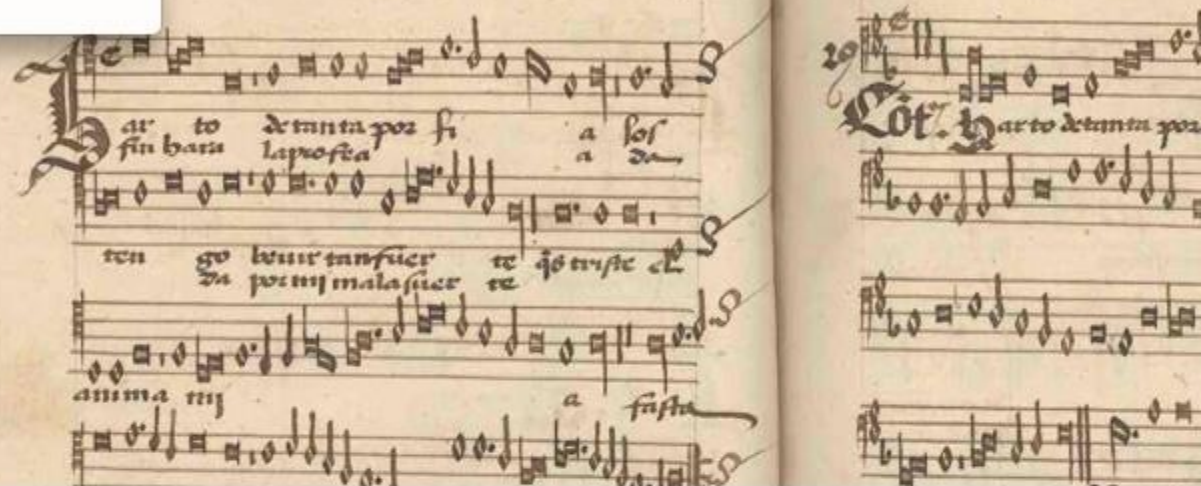 Harto de tanta por fi a los
fin hara la pro fea a da
ten go beuir tan fuer te q̃s triste el
da por mi mala suer te
anima mi a fasta
Cōt.ᵃ Harto de tanta por